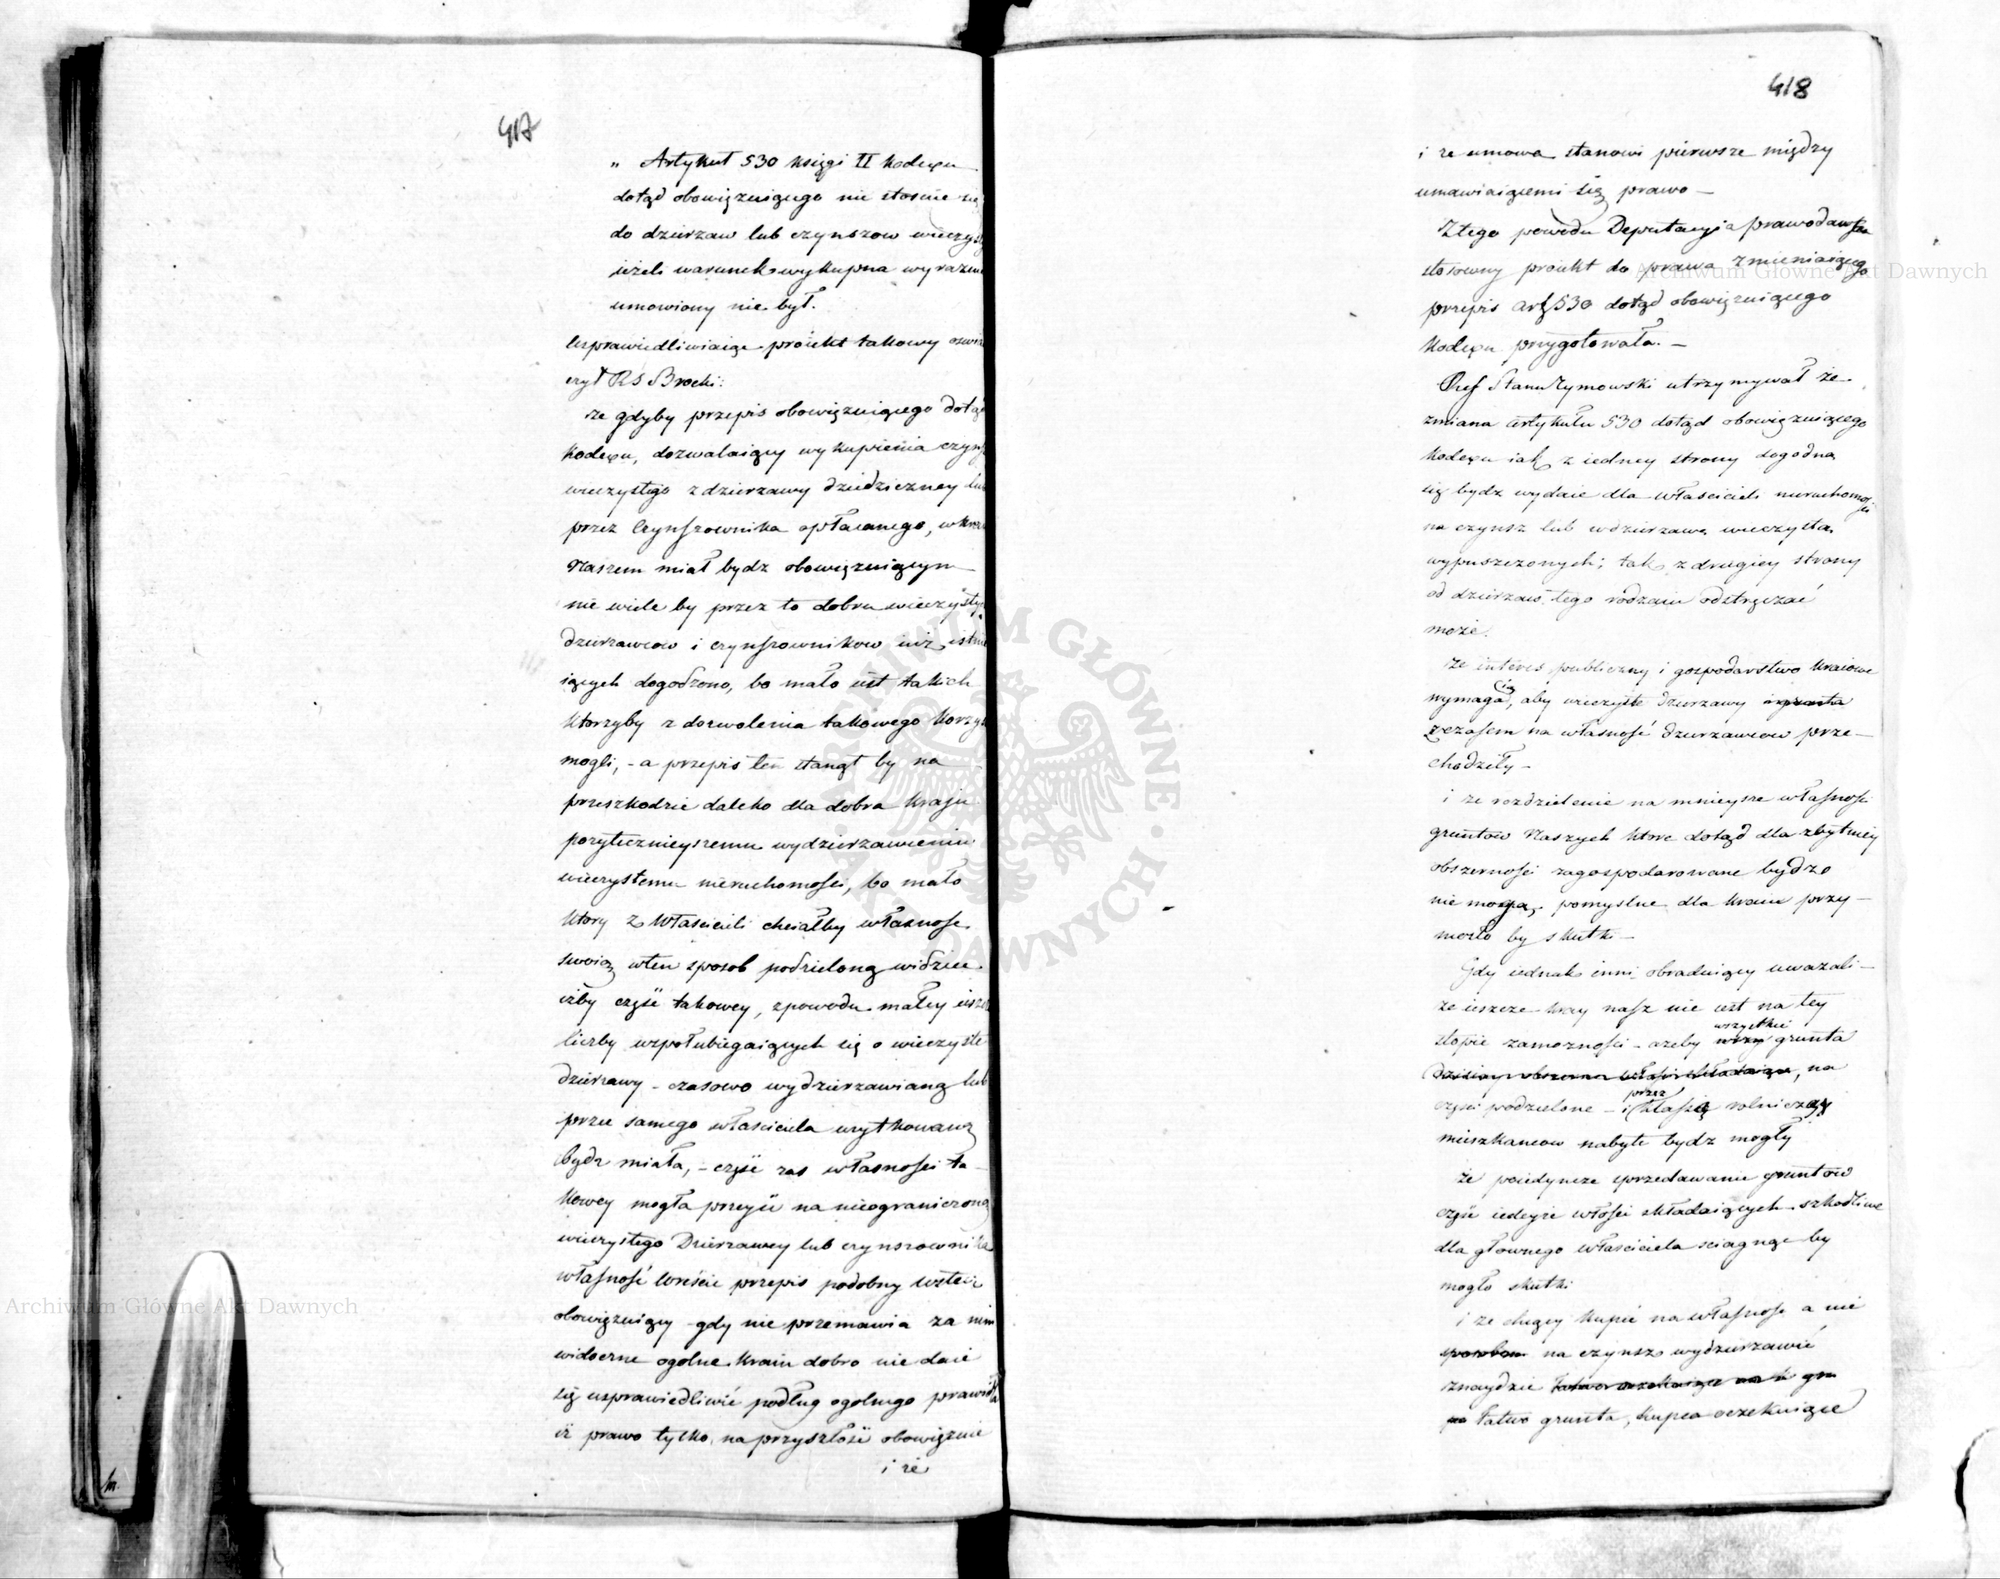 417
„ Artykuł 530 księgi II kodexu
dotąd obowiązuiącego nie stosuie się
do dzierzaw lub czynszow wieczys
ieżeli warunek wykupna wyrazni
umowiony nie był.
Usprawiedliwiaiąc proiekt takowy oswia
czył RS Brocki:
że gdyby przepis obowiązuiącego dotąd
kodexu, dozwalaiący wykupienia czyns
wieczystego z dzierzawy dziedziczney lub
przez Czynszownika opłacanego, w kra
Naszem miał bydz obowiązuiącym
nie wiele by przez to dobru wieczysty
dzierzawcow i czynszownikow iuz istnie
iących dogodzono, bo mało iest takich
ktorzyby z dozwolenia takowego korzys
mogli, - a przepis ten stanął by na
przeszkodzie daleko dla dobra kraju
pozytecznieyszemu wydzierzawieniu
wieczystemu nieruchomosci, bo mało
ktory z Własicieli chciałby własnosc
swoią wten sposob podzieloną widziec
izby częsć takowey, zpowodu małey iesz
liczby wspołubiegaiących się o wieczyste
dzierzawy - czasowo wydzierzawianą lub
przez samego własciciela uzytkowaną
bydz miała, - częsć zas własnosci ta-
kowey mogła przeyść na nieograniczoną
wieczystego Dzierzawcy lub czynszownika
własność wreście przepis podobny wstecz
obowiązuiący - gdy nie przemawia za nim
widoczne ogolne kraiu dobro nie daie
się usprawiedliwić podług ogolnego prawidła
iż prawo tylko na przyszłość obowiązuie
i że
418
i ze umowa stanowi pierwsze między
umawiaiącemi się prawo —
Ztego powodu Deputacyia prawodawcza
stosowny proiekt do prawa zmieniaiącego
przepis art 530 dotąd obowiązuiącego
kodexu przygotowała. —
Ref Stanu Rymowski utrzymywał że
zmiana artykułu 530 dotąd obowiązuiącego
kodexu iak z iedney strony dogodną
się bydz wydaie dla własicieli nieruchomości
na czynsz lub wdzierzawę wieczystą
wypuszczonych; tak z drugiey strony
od dzierzaw tego rodzaiu odstręczać
może.
że interes publiczny i gospodarstwo kraiowe
wymaga, aby wieczyste dzierzawy i grunta
zczasem na własność dzierzawcow prze-
chodziły -
i ze rozdzielenie na mnieysze własnosci
gruntow Naszych ktore dotąd dla zbytniey
obszernosci zagospodarowane bydz
nie mogą, pomyslne dla kraiu przy-
niosło by skutki —
Gdy iednak inni obraduiący uwazali —
że ieszcze kray nasz nie iest na tey
stopie zamoznosci - azeby wszystkie grunta
, na
części podzielone - i przez klassę rolniczą
mieszkancow nabyte bydz mogły
że poiedyncze sprzedawanie gruntow
częsć iedneyże włosci składaiących szkodliwe
dla głownego własciciela sciągnąc by
mogło skutki
i ze chcący kupić na własnosc a nie
na czynsz wydzierzawić
znaydzie
łatwo grunta, kupca oczekuiące
Archiwum Główne Akt Dawnych
Archiwum Główne Akt Dawnych
ARCHIWUM GŁÓWNE AKT DAWNYCH